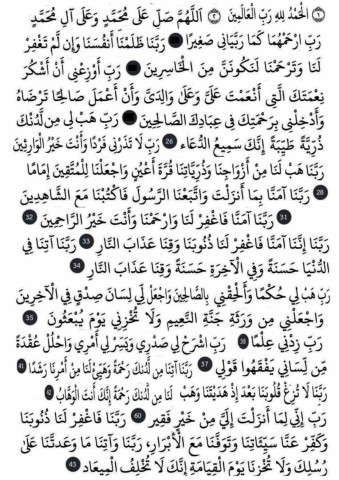 ﴿١﴾ الْحَمْدُ لِلهِ رَبِّ الْعَالَمِينَ ﴿٢﴾ اَللَّهُمَّ صَلِّ عَلَى مُحَمَّدٍ وَعَلَى آلِ مُحَمَّدٍ
رَبِّ ارْحَمْهُمَا كَمَا رَبَّيَانِي صَغِيرًا ● رَبَّنَا ظَلَمْنَا أَنْفُسَنَا وَإِن لَّمْ تَغْفِرْ
لَنَا وَتَرْحَمْنَا لَنَكُونَنَّ مِنَ الْخَاسِرِينَ ● رَبِّ أَوْزِعْنِي أَنْ أَشْكُرَ
نِعْمَتَكَ الَّتِي أَنْعَمْتَ عَلَيَّ وَعَلَى وَالِدَيَّ وَأَنْ أَعْمَلَ صَالِحًا تَرْضَاهُ
وَأَدْخِلْنِي بِرَحْمَتِكَ فِي عِبَادِكَ الصَّالِحِينَ ● رَبِّ هَبْ لِي مِن لَّدُنْكَ
ذُرِّيَّةً طَيِّبَةً إِنَّكَ سَمِيعُ الدُّعَاء 26 رَبِّ لَا تَذَرْنِي فَرْدًا وَأَنتَ خَيْرُ الْوَارِثِينَ
رَبَّنَا هَبْ لَنَا مِنْ أَزْوَاجِنَا وَذُرِّيَّاتِنَا قُرَّةَ أَعْيُنٍ وَاجْعَلْنَا لِلْمُتَّقِينَ إِمَامًا
28 رَبَّنَا آمَنَّا بِمَا أَنزَلْتَ وَاتَّبَعْنَا الرَّسُولَ فَاكْتُبْنَا مَعَ الشَّاهِدِينَ
31 رَبَّنَا آمَنَّا فَاغْفِرْ لَنَا وَارْحَمْنَا وَأَنْتَ خَيْرُ الرَّاحِمِينَ 32
رَبَّنَا إِنَّنَا آمَنَّا فَاغْفِرْ لَنَا ذُنُوبَنَا وَقِنَا عَذَابَ النَّارِ 33 رَبَّنَا آتِنَا فِي
الدُّنْيَا حَسَنَةً وَفِي الْآخِرَةِ حَسَنَةً وَقِنَا عَذَابَ النَّارِ 34
رَبِّ هَبْ لِي حُكْمًا وَأَلْحِقْنِي بِالصَّالِحِينَ وَاجْعَل لِّي لِسَانَ صِدْقٍ فِي الْآخِرِينَ
وَاجْعَلْنِي مِن وَرَثَةِ جَنَّةِ النَّعِيمِ وَلَا تُخْزِنِي يَوْمَ يُبْعَثُونَ 35
رَبِّ زِدْنِي عِلْمًا 38 رَبِّ اشْرَحْ لِي صَدْرِي وَيَسِّرْ لِي أَمْرِي وَاحْلُلْ عُقْدَةً
مِّن لِّسَانِي يَفْقَهُوا قَوْلِي 37 رَبَّنَا آتِنَا مِن لَّدُنكَ رَحْمَةً وَهَيِّئْ لَنَا مِنْ أَمْرِنَا رَشَدًا 41
رَبَّنَا لَا تُزِغْ قُلُوبَنَا بَعْدَ إِذْ هَدَيْتَنَا وَهَبْ لَنَا مِن لَّدُنكَ رَحْمَةً إِنَّكَ أَنتَ الْوَهَّابُ 42
رَبِّ إِنِّي لِمَا أَنزَلْتَ إِلَيَّ مِنْ خَيْرٍ فَقِير 60 رَبَّنَا فَاغْفِرْ لَنَا ذُنُوبَنَا
وَكَفِّرْ عَنَّا سَيِّئَاتِنَا وَتَوَفَّنَا مَعَ الْأَبْرَارِ، رَبَّنَا وَآتِنَا مَا وَعَدتَّنَا عَلَى
رُسُلِكَ وَلَا تُخْزِنَا يَوْمَ الْقِيَامَةِ إِنَّكَ لَا تُخْلِفُ الْمِيعَاد 43